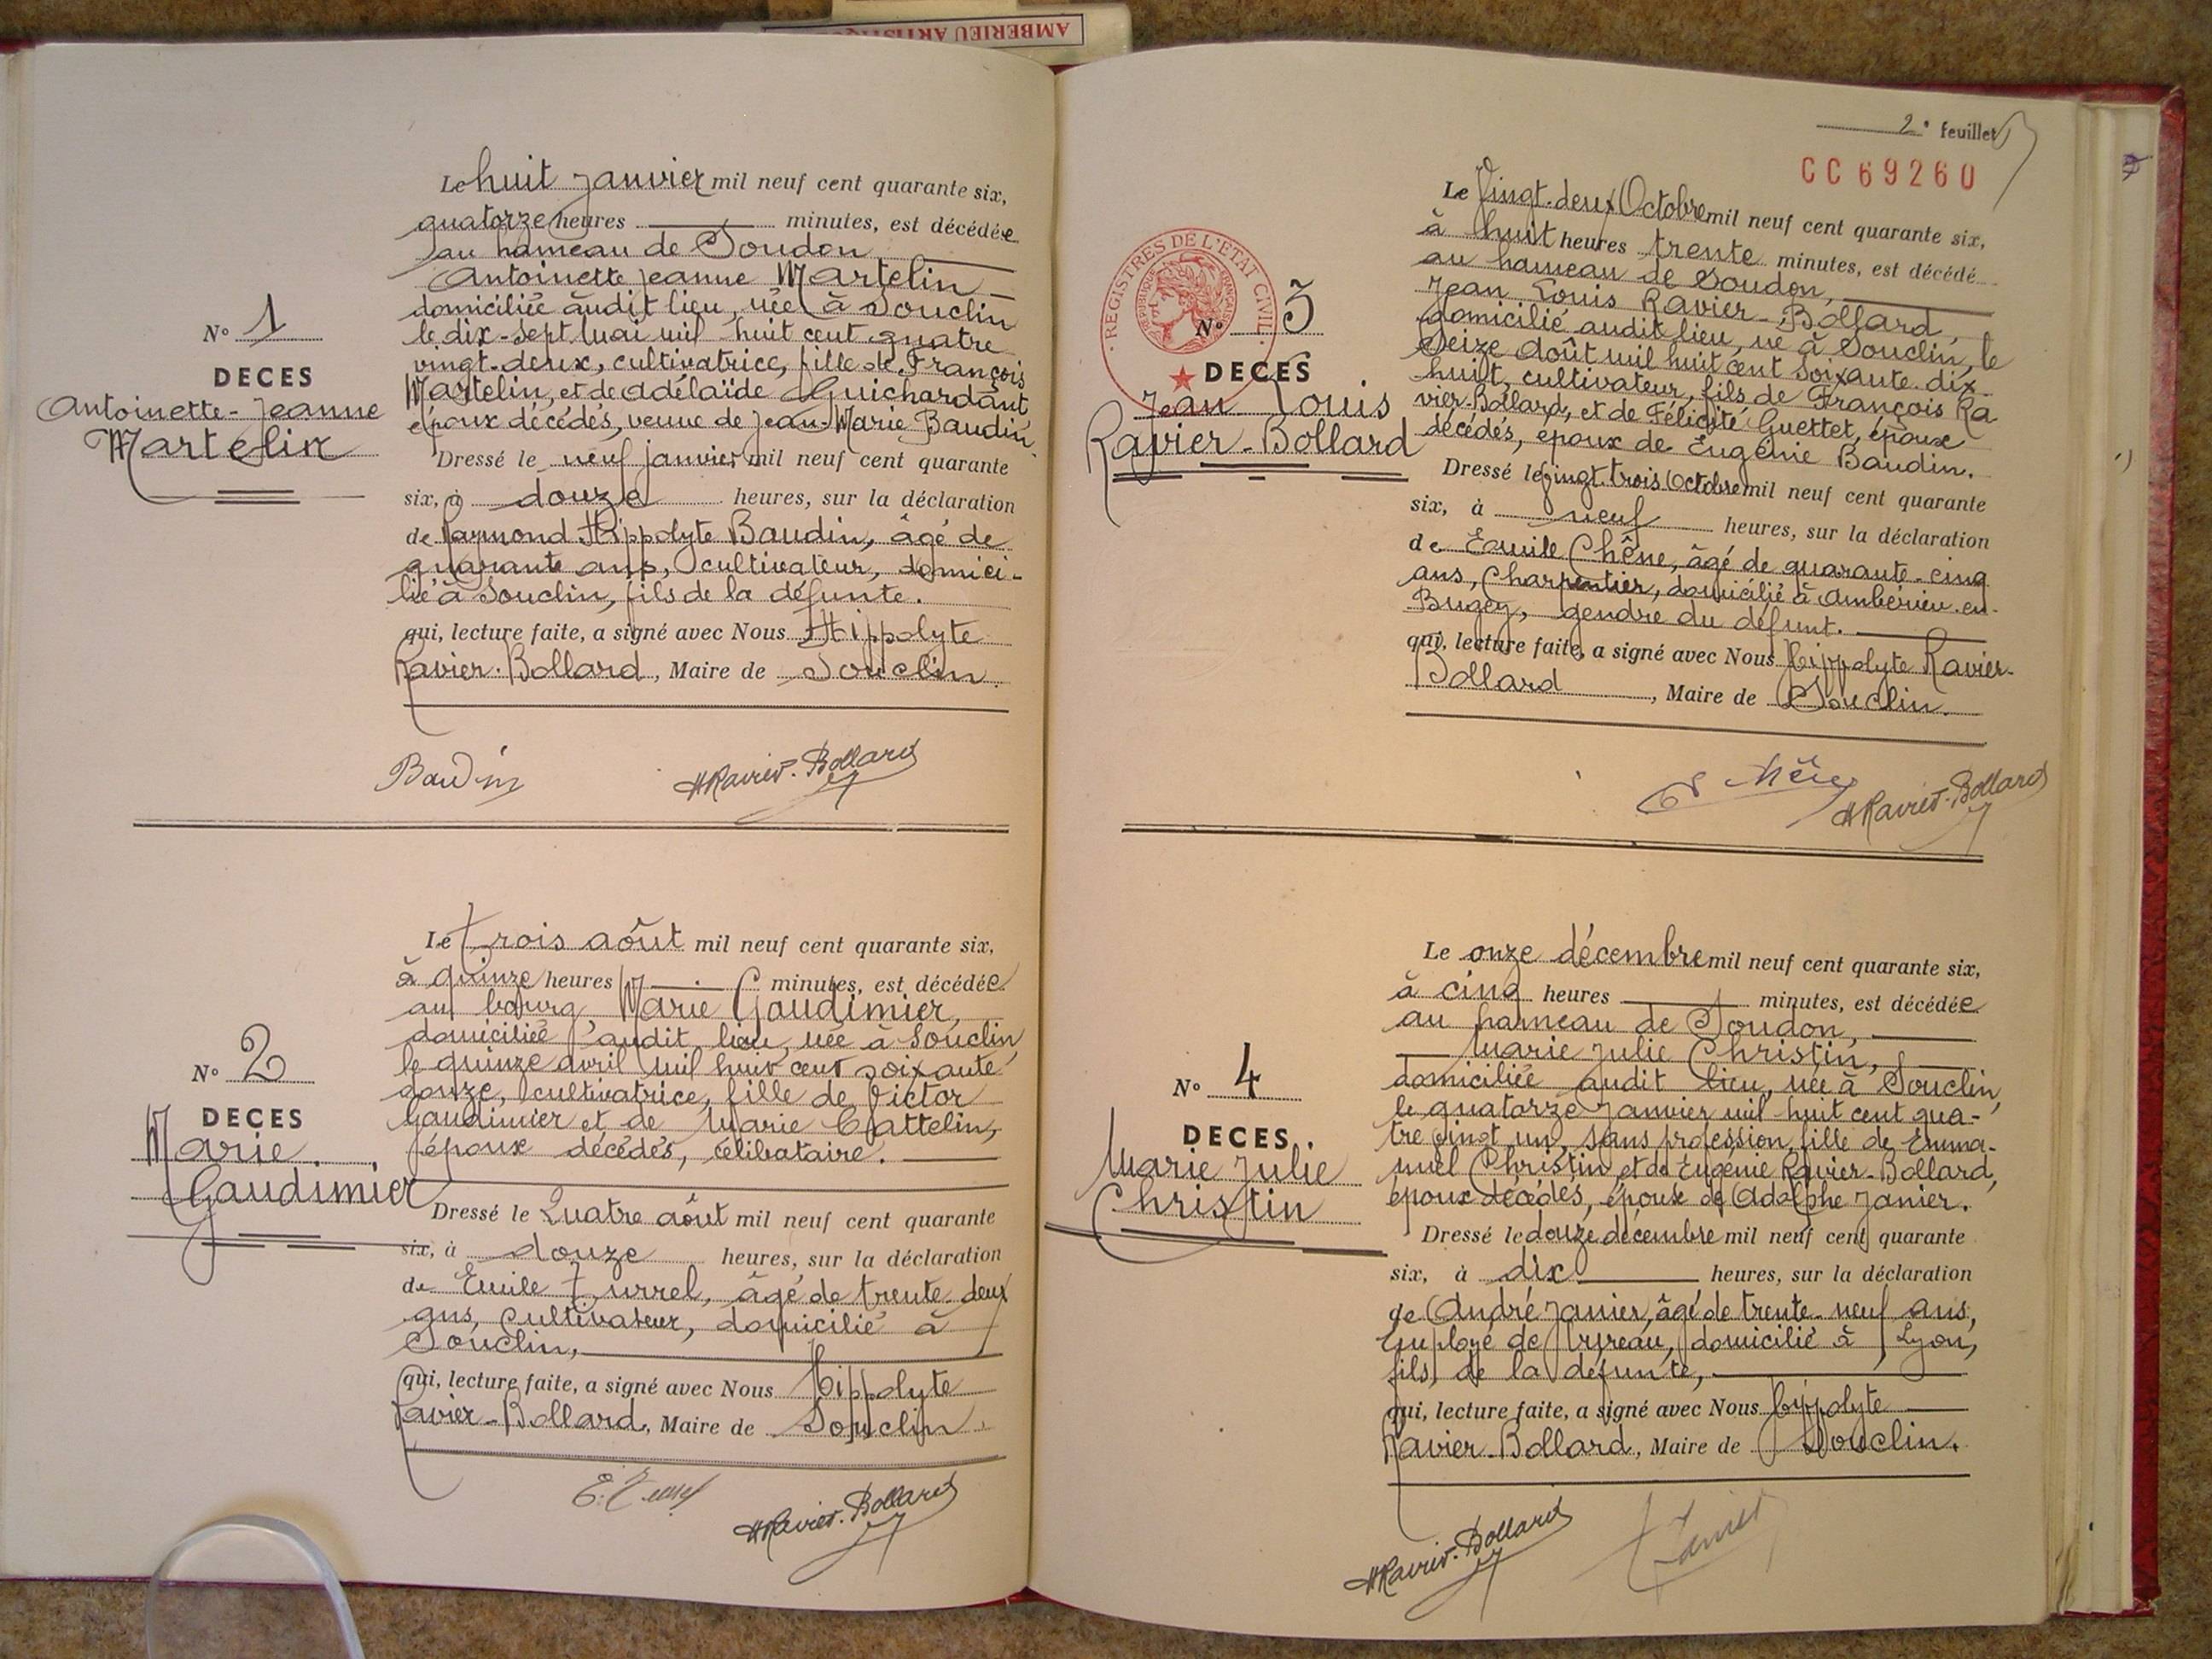 AMBERIEU ARTISTIQUE
N° 1
DECES
Antoinette-Jeanne
Martelin
Le huit janvier mil neuf cent quarante six,
quatorze heures ——— minutes, est décédée
au hameau de Soudon
Antoinette Jeanne Martelin
domiciliée audit lieu, née à Souclin
le dix-sept mai mil huit cent quatre
vingt-deux, cultivatrice, fille de François
Martelin, et de Adélaïde Guichardant
époux décédés, veuve de Jean-Marie Baudin
Dressé le neuf janvier mil neuf cent quarante
six, à douze heures, sur la déclaration
de Raymond Hippolyte Baudin, âgé de
quarante ans, cultivateur, domici-
lié à Souclin, fils de la défunte.
qui, lecture faite, a signé avec Nous Hippolyte
Ravier-Bollard, Maire de Souclin.
Baudin
HRavier-Bollard
N° 2
DECES
Marie
Gaudimier
Le trois août mil neuf cent quarante six,
à quinze heures ——— minutes, est décédée
au bourg, Marie Gaudimier,
domiciliée audit lieu, née à Souclin
le quinze avril mil huit cent soixante
douze, cultivatrice, fille de Victor
Gaudimier et de Marie Cattelin,
époux décédés, célibataire.
Dressé le Quatre août mil neuf cent quarante
six, à douze heures, sur la déclaration
de Emile Turrel, âgé de trente-deux
ans, cultivateur, domicilié à
Souclin,
qui, lecture faite, a signé avec Nous Hippolyte
Ravier-Bollard, Maire de Souclin.
HRavier-Bollard
2e feuillet
CC 69260
REGISTRES DE L'ETAT CIVIL
REPUBLIQUE FRANÇAISE
N° 3
DECES
Jean Louis
Ravier-Bollard
Le Vingt-deux Octobre mil neuf cent quarante six,
à huit heures trente minutes, est décédé
au hameau de Soudon,
Jean Louis Ravier-Bollard,
domicilié audit lieu, né à Souclin, le
Seize Août mil huit cent soixante-dix
huit, cultivateur, fils de François Ra
vier-Bollard, et de Félicité Guettet, époux
décédés, époux de Eugénie Baudin.
Dressé le vingt-trois Octobre mil neuf cent quarante
six, à neuf heures, sur la déclaration
de Emile Chêne, âgé de quarante-cinq
ans, Charpentier, domicilié à Ambérieu-en-
Bugey, gendre du défunt.
qui, lecture faite, a signé avec Nous Hippolyte Ravier-
Bollard, Maire de Souclin.
HRavier-Bollard
N° 4
DECES
Marie Julie
Christin
Le onze décembre mil neuf cent quarante six,
à cinq heures ——— minutes, est décédée
au hameau de Soudon,
Marie Julie Christin,
domiciliée audit lieu, née à Souclin,
le quatorze janvier mil huit cent qua-
tre vingt un, sans profession, fille de Emma-
nuel Christin et de Eugénie Ravier-Bollard,
époux décédés, épouse de Adolphe Janier.
Dressé le douze décembre mil neuf cent quarante
six, à dix heures, sur la déclaration
de André Janier, âgé de trente-neuf ans,
Employé de Bureau, domicilié à Lyon,
fils de la défunte,
qui, lecture faite, a signé avec Nous Hippolyte
Ravier-Bollard, Maire de Souclin.
HRavier-Bollard
Janier